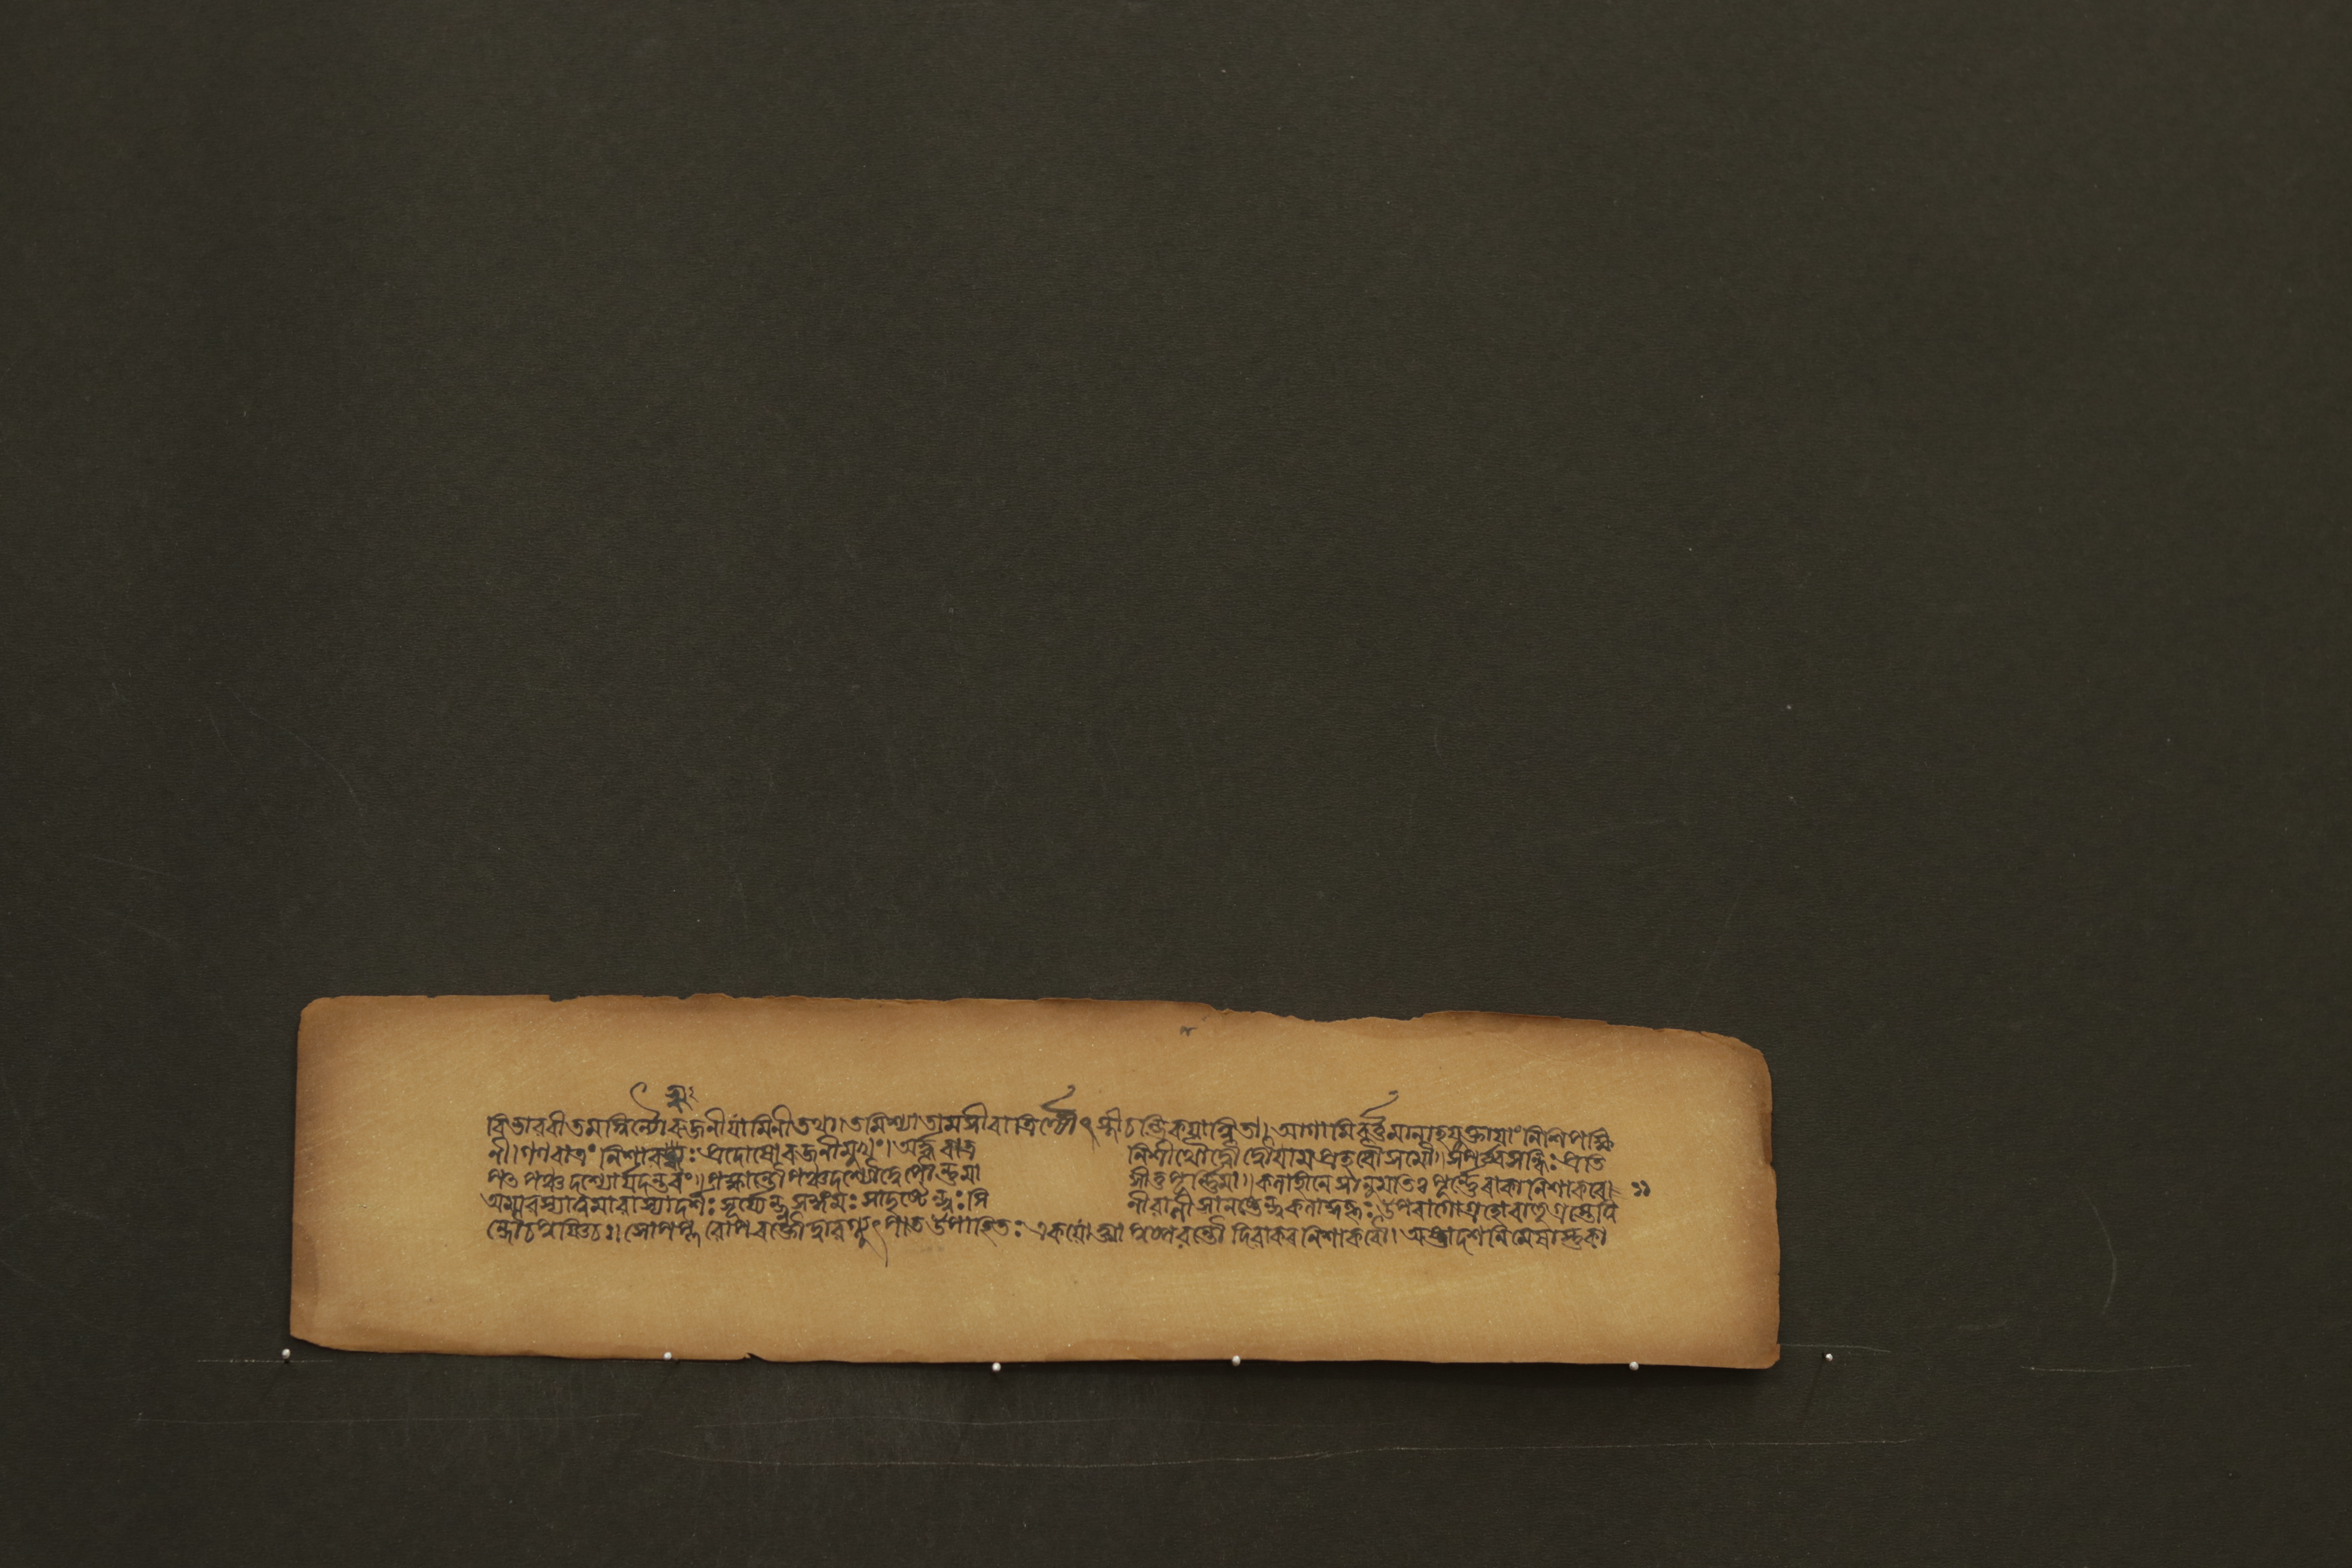 বিভাবরীতমস্বিন্যৌরজনীযামিনীতথা।তমিশ্যাতামসীরাত্রির্জ্যোৎস্নীচন্দ্রিকয়ান্বিতা। আগামিবর্ত্তমানাহর্যুক্তায়াং নিশিপক্ষি
নী।গণরাত্রং নিশাবহ্ব্যঃ প্রদোষোরজনীমুখং।অর্দ্ধরাত্র নিশীথৌদ্বৌ দ্বৌযামপ্রহরৌসমৌ॥সপর্ব্বসন্ধিঃ প্রতি
পৎ পঞ্চদশ্যোর্যদন্তরং॥পক্ষান্তৌপঞ্চদশ্যৌদ্বেপৌর্ন্নমা সীতুপূর্ন্নিমা॥কলাহীনেসানুমতিঃ পূর্ন্নেরাকানিশাকরে। ১১
অমাবস্যাত্বমাবাস্যাদর্শঃ সূর্য্যেন্দুসঙ্গমঃ সাদৃষ্টেন্দুঃ সি নীবালীসানষ্টেন্দুকলাকুহূঃ উপরাগোগ্রহোরাহুগ্রস্তেত্বি
ন্দৌচপূষ্ণিচ॥সোপপ্লবোপরক্তৌদ্বাবগ্ন্যুৎপাত উপাহিতঃ একয়োক্ত্যা পুষ্পবন্তৌ দিবাকরনিশাকরৌ॥ অষ্টাদশনিমেষাস্তুকা